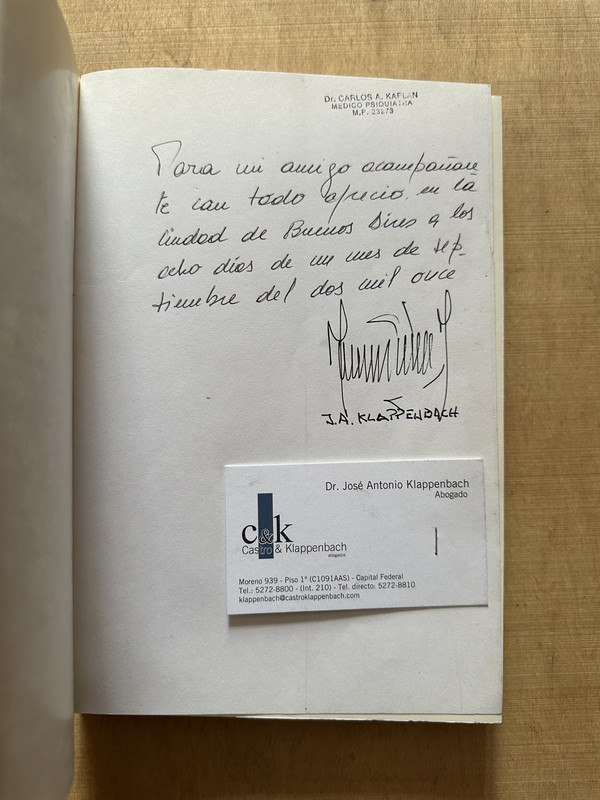 Dr. CARLOS A. KAPLAN
MEDICO PSIQUIATRA
M.P. 23273
Para mi amigo acompañan
te con todo aprecio, en la
Ciudad de Buenos Aires a los
ocho días de un mes de sep-
tiembre del dos mil once
J.A. KLAPPENBACH
Dr. José Antonio Klappenbach
Abogado
c&k
Castro & Klappenbach
abogados
Moreno 939 - Piso 1° (C1091AAS) - Capital Federal
Tel.: 5272-8800 - (Int. 210) - Tel. directo: 5272-8810
klappenbach@castroklappenbach.com